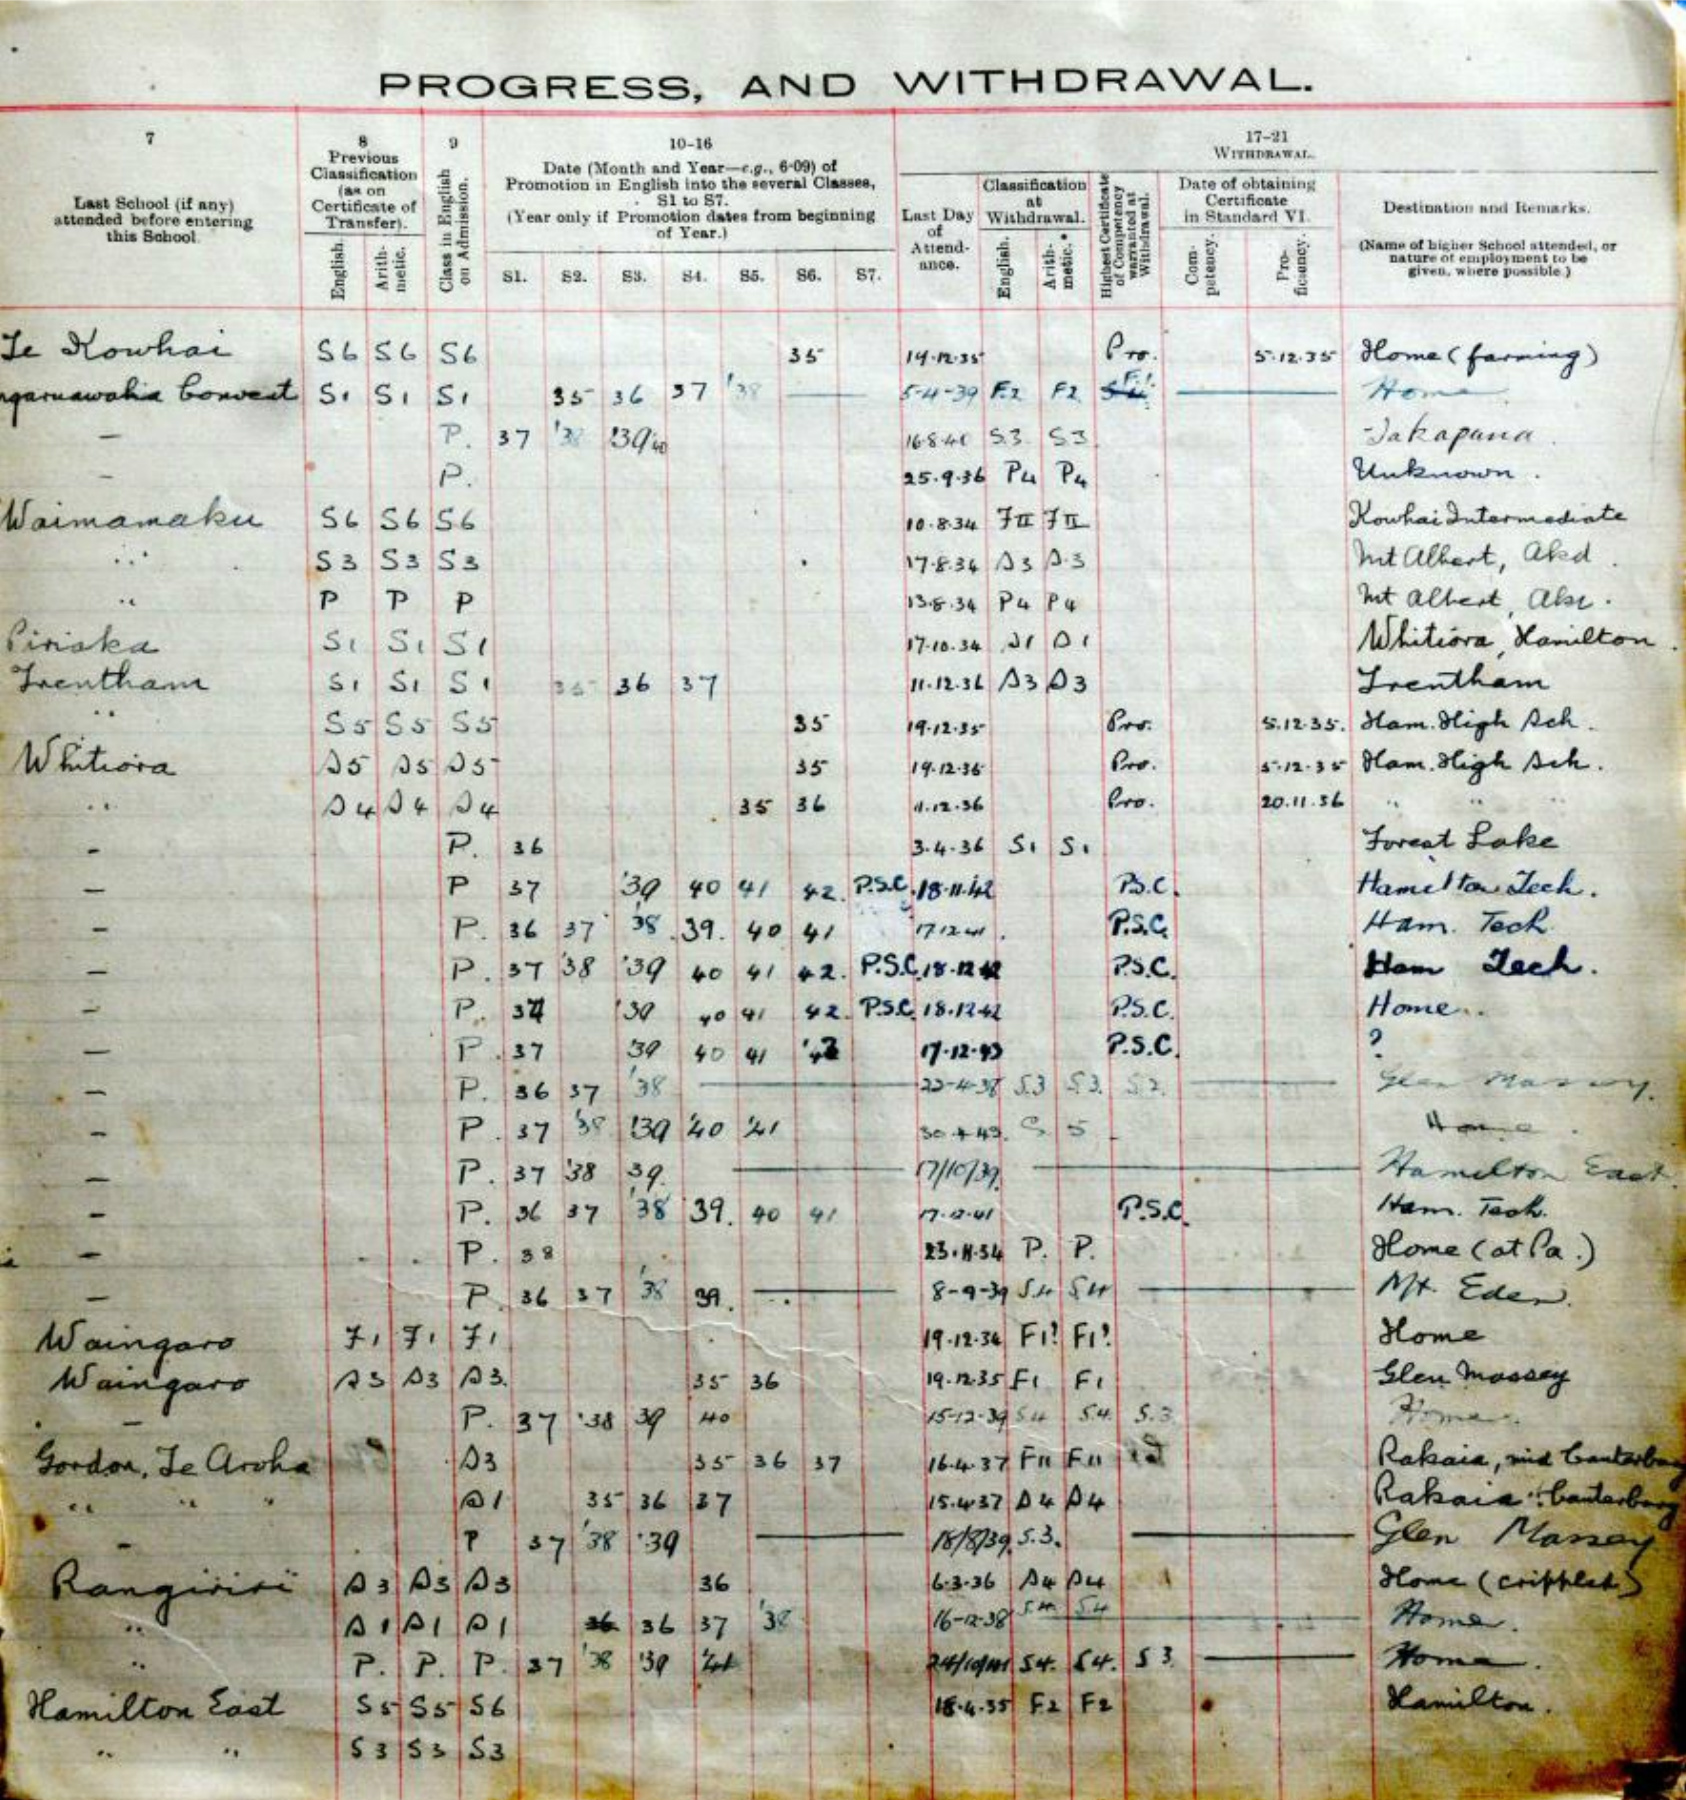 PROGRESS, AND WITHDRAWAL.
7 8 9 10-16 17-21
Last School (if any) attended before entering this School
Previous Classification (as on Certificate of Transfer).
English. Arithmetic.
Class in English on Admission.
Date (Month and Year—e.g., 6-09) of Promotion in English into the several Classes, S1 to S7.
(Year only if Promotion dates from beginning of Year.)
S1. S2. S3. S4. S5. S6. S7.
WITHDRAWAL.
Last Day of Attendance.
Classification at Withdrawal.
English. Arithmetic.
Highest Certificate of Competency warranted at Withdrawal.
Date of obtaining Certificate in Standard VI.
Competency. Proficiency.
Destination and Remarks.
(Name of higher School attended, or nature of employment to be given, where possible.)
Te Kowhai S6 S6 S6 35 14.12.35 Pro. 5.12.35 Home (farming)
ngaruawahia Convent S1 S1 S1 35 36 37 '38 — 5-4-39 F.2 F2 — Home
– P. 37 '38 '39 40 16.8.40 S.3 S3 Takapuna.
– P. 25.9.36 P4 P4 Unknown.
Waimamaku S6 S6 S6 10.8.34 FII FII Kowhai Intermediate
" S3 S3 S3 17.8.34 S3 S3 Mt Albert, Akd.
" P P P 13.8.34 P4 P4 Mt Albert, Ak.
Piriaka S1 S1 S1 17.10.34 S1 S1 Whitiora, Hamilton.
Trentham S1 S1 S1 35 36 37 11.12.36 S3 S3 Trentham
" S5 S5 S5 35 19.12.35 Pro. 5.12.35. Ham. High Sch.
Whitiora S5 S5 S5 35 19.12.35 Pro. 5.12.35 Ham. High Sch.
" S4 S4 S4 35 36 11.12.36 Pro. 20.11.36 " " "
– P. 36 3.4.36 S1 S1 Forest Lake
– P 37 '39 40 41 42. P.S.C. 18.11.42 P.S.C. Hamilton Tech.
– P. 36 37 '38 39. 40 41 17.12.41. P.S.C. Ham. Tech
– P. 37 '38 '39 40 41 42. P.S.C. 18.12.42 P.S.C. Ham Tech.
– P. 37 '39 40 41 42. P.S.C. 18.12.42 P.S.C. Home..
– P. 37 '39 40 41 17-12-43 P.S.C. ?
– P. 36 37 '38 — 22-4-38 S.3 S3. S2. — Glen Massey.
– P. 37 '38 '39 '40 '41 S 5 Home.
– P. 37 '38 39. — 17/10/39. — Hamilton East.
– P. 36 37 '38 39. 40 41 17.12.41 P.S.C. Ham. Tech.
– P. 38 23.11.34 P. P. Home (at Pa.)
– P. 36 37 '38 39. — 8-9-39 S4 S4 — Mt. Eden.
Waingaro F1 F1 F1 19.12.34 F1! F1! Home
Waingaro S3 S3 S3. 35 36 19.12.35 F1 F1 Glen Massey
– P. 37 '38 39 40 15-12-39 S4 S4. S.3 Home.
Gordon, Te Aroha S3 35 36 37 16.4.37 F11 F11 Rakaia, mid Canterbury
" " " S1 35 36 37 15.4.37 S4 S4 Rakaia. Canterbury
– P 37 '38 '39 — 18/8/39. S.3. — Glen Massey
Rangiriri S3 S3 S3 36 6.3.36 S4 S4 Home (cripple)
" S1 S1 S1 36 36 37 '38 16-12-38 S4 S4 — Home.
" P. P. P. 37 '38 '39 '41 S4. S4. S3. — Home.
Hamilton East S5 S5 S6 18.4.35 F2 F2 Hamilton.
" " S3 S3 S3